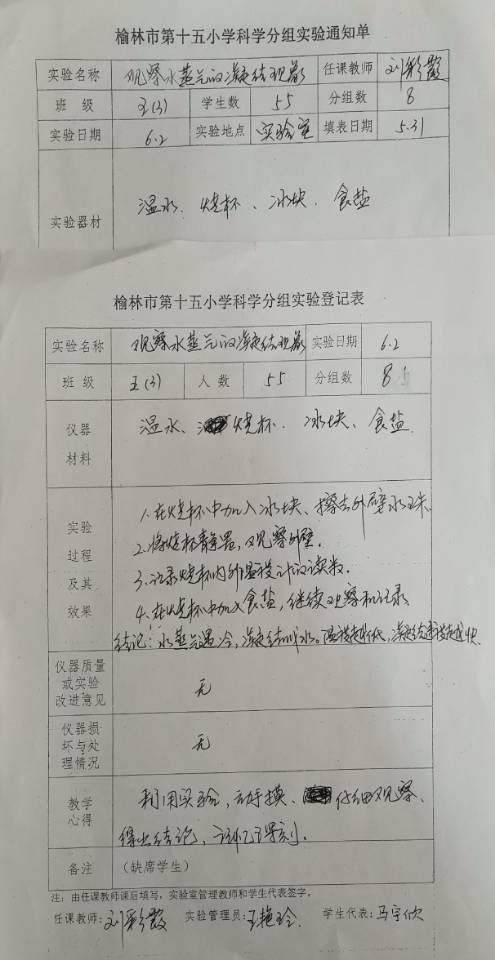 榆林市第十五小学科学分组实验通知单
实验名称 观察水蒸气的凝结现象 任课教师 刘彩霞
班 级 五(3) 学生数 55 分组数 8
实验日期 6.2 实验地点 实验室 填表日期 5.31
实验器材 温水、烧杯、冰块、食盐
榆林市第十五小学科学分组实验登记表
实验名称 观察水蒸气的凝结现象 实验日期 6.2
班 级 五(3) 人 数 55 分组数 8
仪器 材料 温水、烧杯、冰块、食盐
实验 过程 及其 效果
1.在烧杯中加入冰块、擦去外壁水珠.
2.将烧杯静置,观察外壁.
3.记录烧杯内外温度计的读数.
4.在烧杯中加入食盐,继续观察和记录.
结论:水蒸气遇冷,凝结成水。温度越低,凝结速度越快.
仪器质量 或实验 改进意见 无
仪器损 坏与处 理情况 无
教学 心得 利用实验,动手摸、仔细观察、
得出结论,记忆深刻.
备注 (缺席学生)
注:由任课教师课后填写,实验室管理教师和学生代表签字。
任课教师: 实验管理员:王艳玲 学生代表:马宇欣